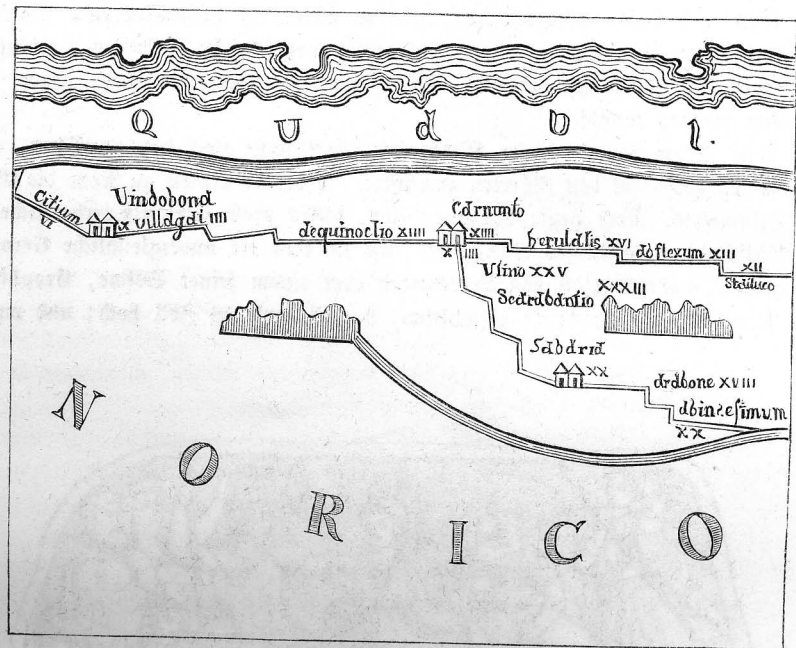 Q U a D I.
Citium
VI
Uindobona
X villagai IIII
aequinoctio XIIII
Carnunto
XIIII
X
IIII
herulatis XVI
adflexum XIII
XII
Stailuco
Ulmo XXV
Scarabantio
XXXIII
Sabaria
XX
arabone XVIII
XX
N O R I C O